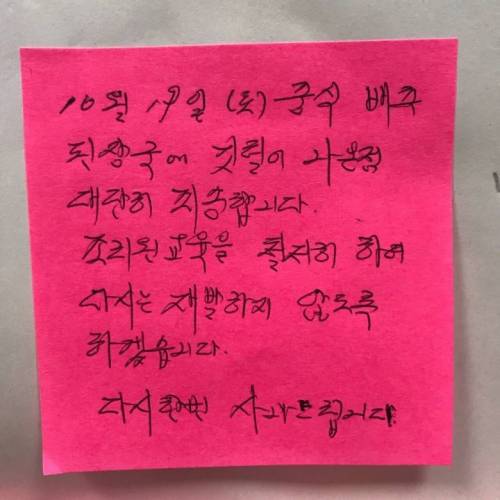 10월 19일 (토) 중식 배추
된장국에 것털이 나온점
대단히 죄송합니다.
조리원교육을 철저히 하여
다시는 재발하지 않도록
하겠습니다.
다시한번 사과드립니다.